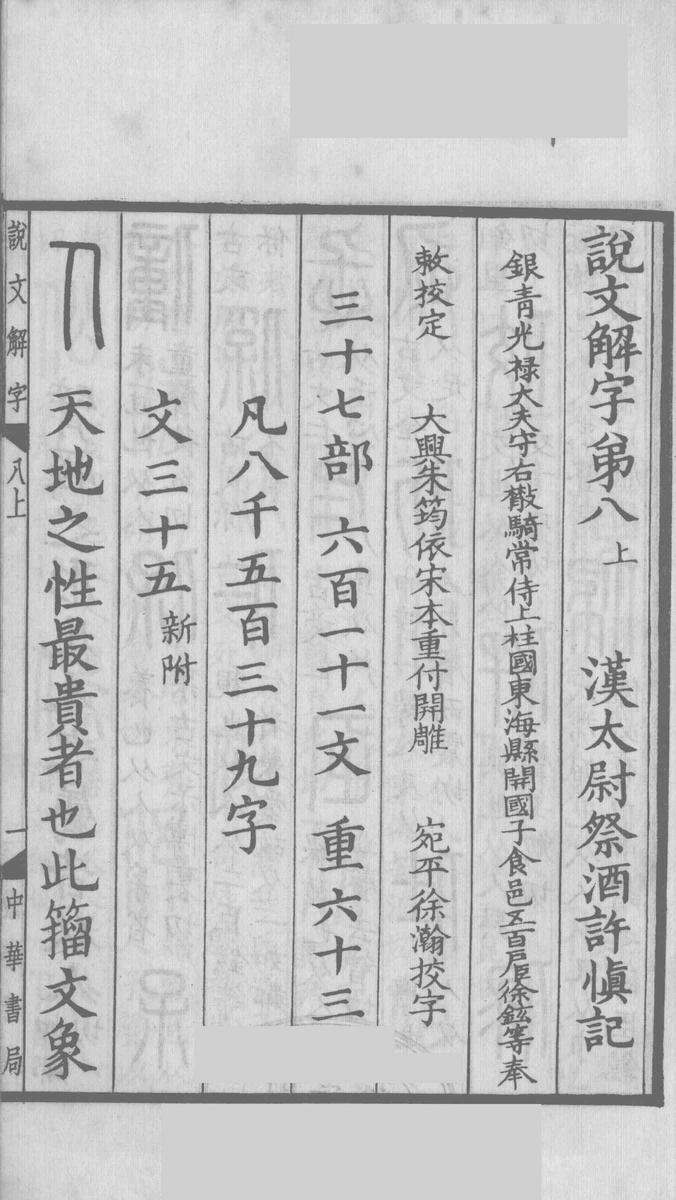 說文解字弟八上 漢太尉祭酒許愼記
銀青光祿大夫守右散騎常侍上柱國東海縣開國子食邑五百戶臣徐鉉等奉
敕挍定 大興朱筠依宋本重付開雕 宛平徐瀚挍字
三十七部 六百一十一文 重六十三
凡八千五百三十九字
文三十五新附
人 天地之性最貴者也此籒文象
說文解字 八上 一 中華書局